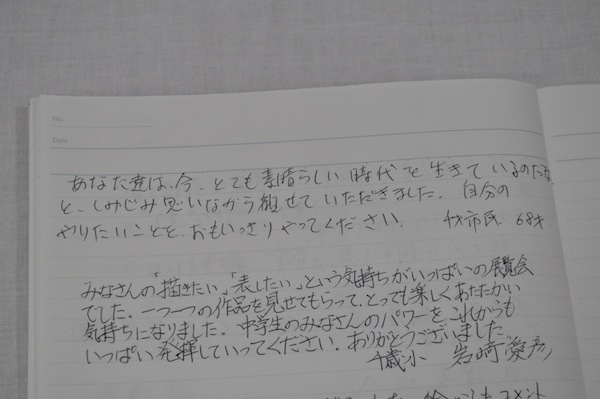 No.
Date
あなた達は、今、とても素晴らしい時代を生きているのだな
と、しみじみ思いながら観せていただきました。自分の
やりたいことを、おもいっきりやってください。 千才市民 68才
みなさんの「描きたい」「表したい」という気持ちがいっぱいの展覧会
でした。一つ一つの作品を見せてもらって、とっても楽しくあたたかい
気持ちになりました。中学生のみなさんのパワーを、これからも
いっぱい発揮していってください。ありがとうございました
千歳小 岩崎愛彦
コメント